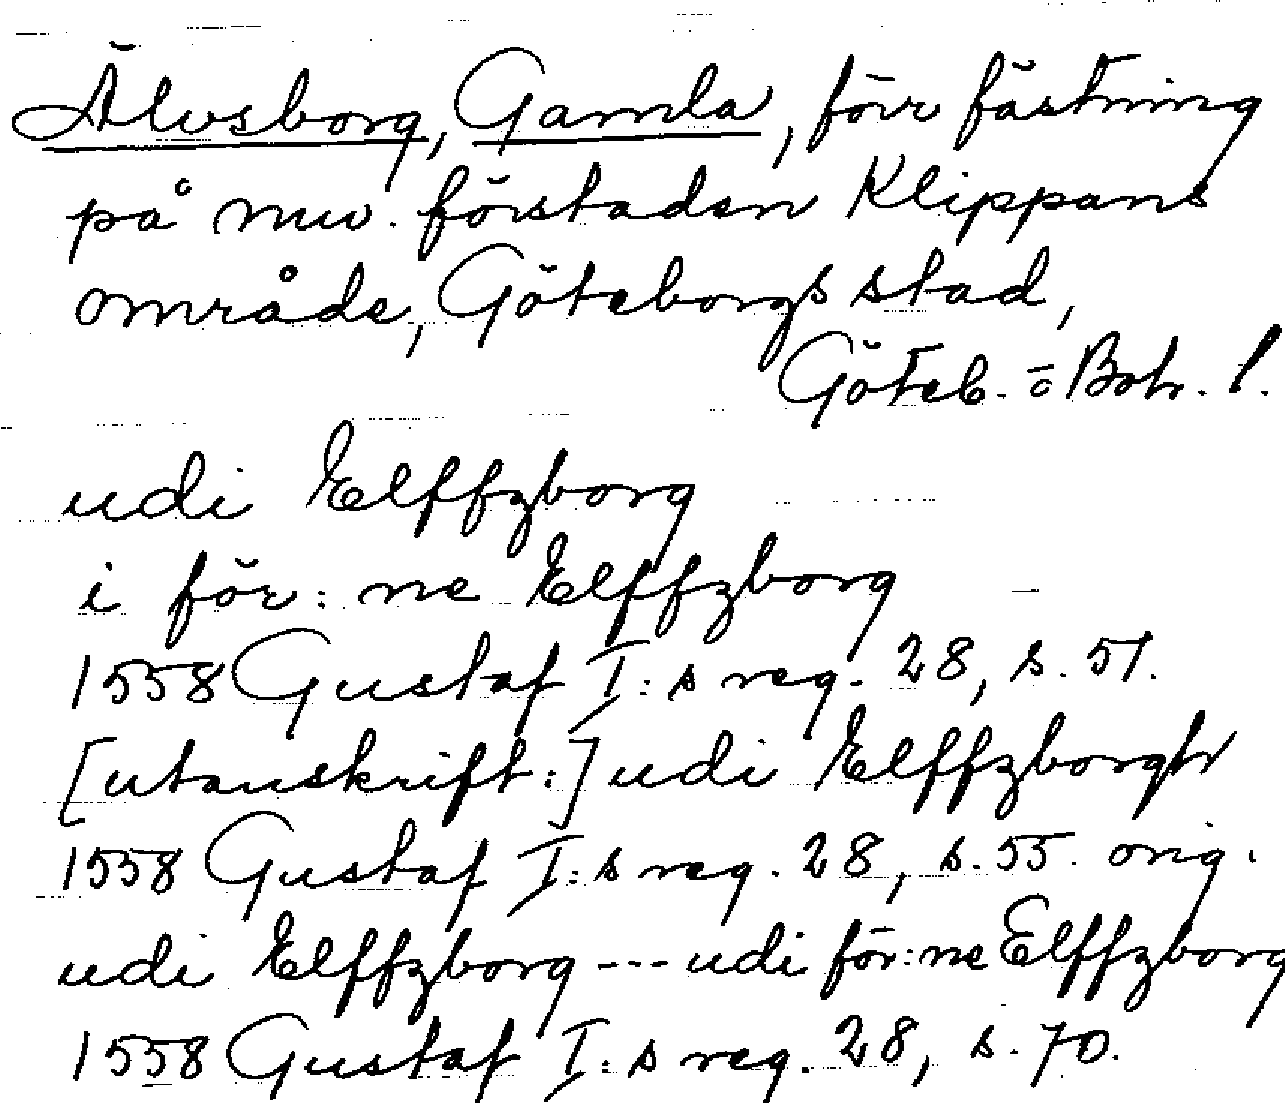 Älvsborg, Gamla, förr fästning
på nuv. förstaden Klippans
område, Göteborgs stad,
Göteb. o Boh. l.
udi Elffzborg
i för: ne Elffzborg
1558 Gustaf I: s reg. 28, s. 51.
[utanskrift:] udi Elffzborgh
1558 Gustaf I: s reg. 28, s. 55. orig.
udi Elffzborg --- udi för:ne Elffzborg
1558 Gustaf I: s reg. 28, s. 70.